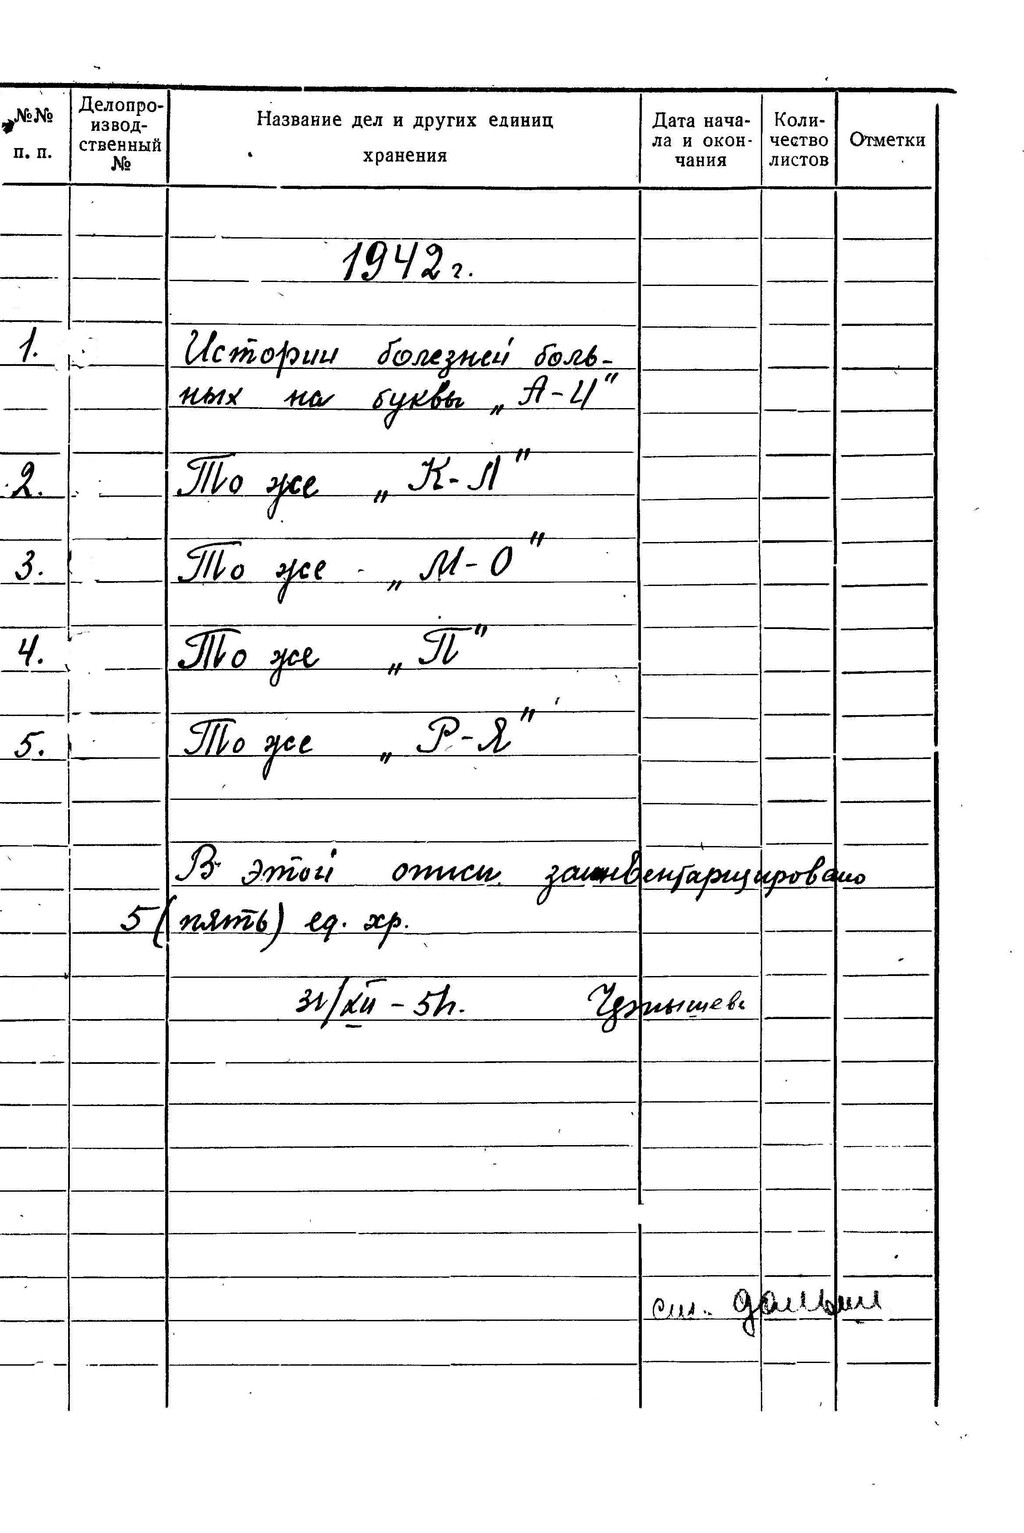 №№ п. п.
Делопро-
извод-
ственный
№
Название дел и других единиц
хранения
Дата нача-
ла и окон-
чания
Коли-
чество
листов
Отметки
1942 г.
1. Истории болезней боль-
ных на буквы „А-И"
2. То же „К-Л"
3. То же „М-О"
4. То же „П"
5. То же „Р-Я"
В этой описи заинвентарицировано
5 (пять) ед. хр.
31/XII - 51г.
см.